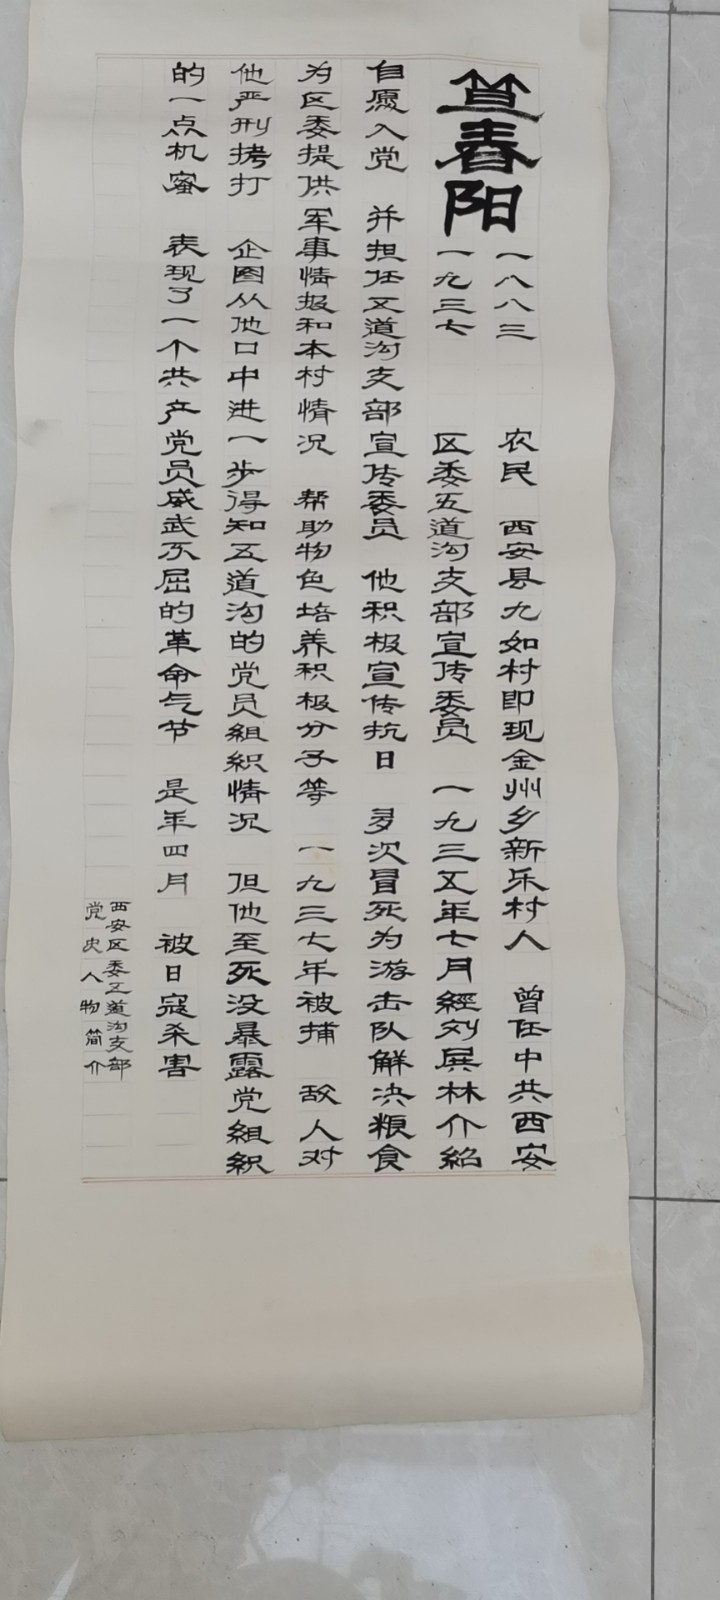 笪春阳
一八八三 农民 西安县九如村即现金州乡新乐村人 曾任中共西安
一九三七 区委五道沟支部宣传委员 一九三五年七月經刘展林介紹
自愿入党 并担任五道沟支部宣传委员 他积极宣传抗日 多次冒死为游击队解决粮食
为区委提供军事情报和本村情况 帮助物色培养积极分子等 一九三七年被捕 敌人对
他严刑拷打 企图从他口中进一步得知五道沟的党员組織情况 但他至死没暴露党組織
的一点机密 表现了一个共产党员威武不屈的革命气节 是年四月 被日寇杀害
西安区委五道沟支部
党史人物简介